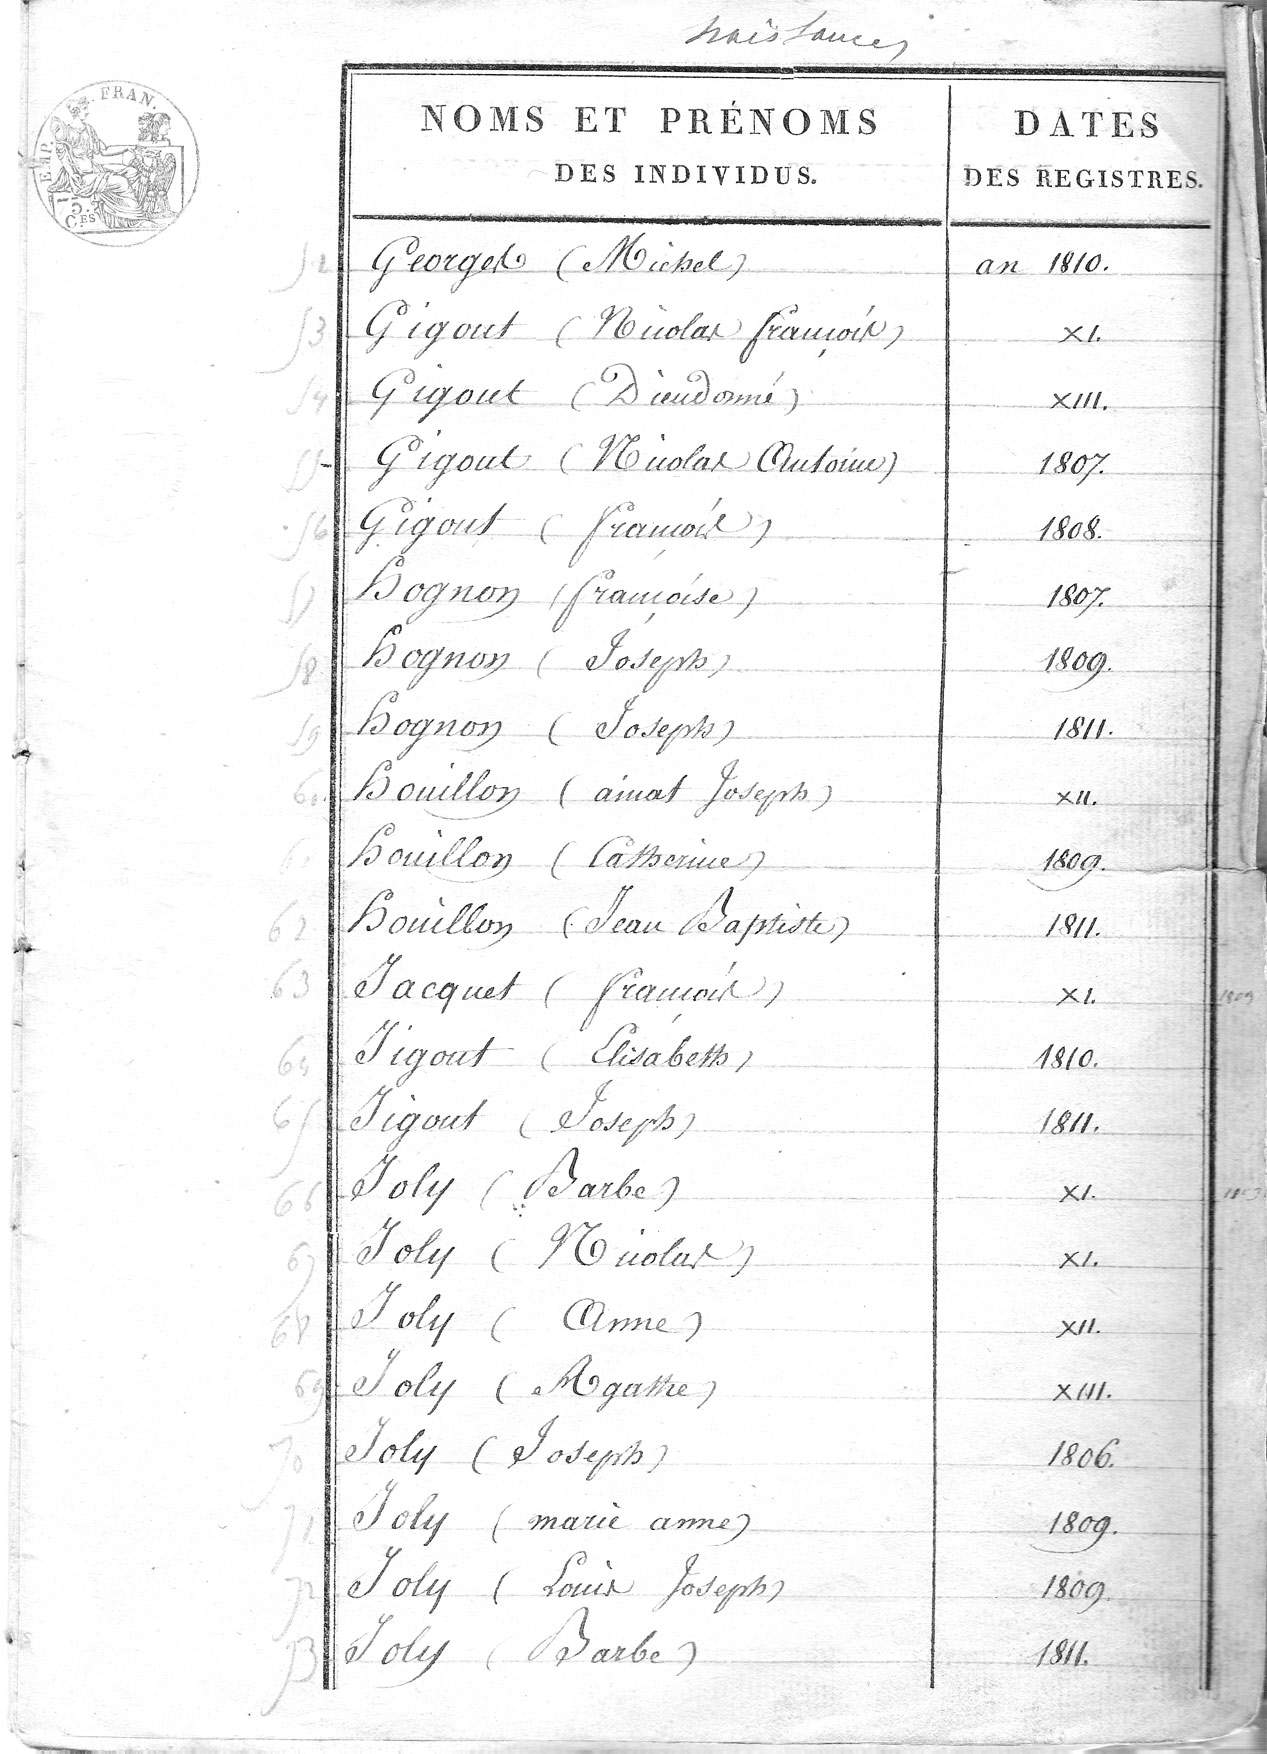 naissances
NOMS ET PRÉNOMS DES INDIVIDUS. DATES DES REGISTRES.
EMP. FRAN.
75. C.ES
52 Georgel (Michel) an 1810.
53 Gigout (Nicolas françois) XI.
54 Gigout (Dieudonné) XIII.
55 Gigout (Nicolas Antoine) 1807.
56 Gigout (françois) 1808.
57 hognon (françoise) 1807.
58 hognon (Joseph) 1809.
59 hognon (Joseph) 1811.
60 houillon (aimat Joseph) XII.
61 houillon (Catherine) 1809.
62 houillon (Jean Baptiste) 1811.
63 Jacquet (françois) XI. 1803
64 Jigout (Elisabeth) 1810.
65 Jigout (Joseph) 1811.
66 Joly (Barbe) XI. 1803
67 Joly (Nicolas) XI.
68 Joly (Anne) XII.
69 Joly (Agathe) XIII.
70 Joly (Joseph) 1806.
71 Joly (marie anne) 1809.
72 Joly (Louis Joseph) 1809.
73 Joly (Barbe) 1811.